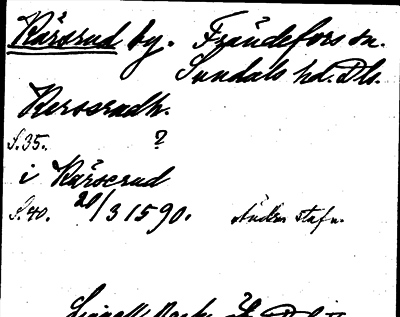 Kärsrud by. Frändefors sn.
Sundals hd. Dls.
Kersrudh.
S. 35. ?
i Kärserud
S. 40. 20/3 1590. Änders stafn.